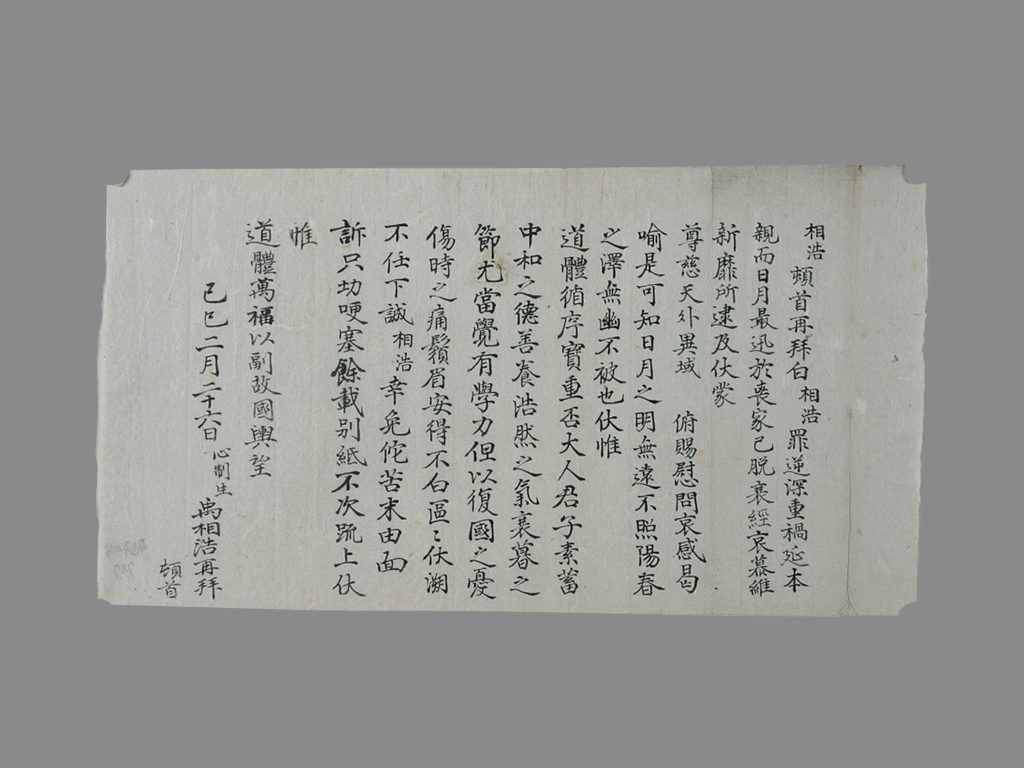 相浩 頓首再拜白 相浩 罪逆深重禍延本
親而日月最迅於喪家已脫衰絰哀慕維
新靡所逮及伏蒙
尊慈天外異域 俯賜慰問哀感曷
喻是可知日月之明無遠不照陽春
之澤無幽不被也伏惟
道體循序寶重否大人君子素蓄
中和之德善養浩然之氣衰暮之
節尤當覺有學力但以復國之憂
傷時之痛鬚眉安得不白區〻伏溯
不任下誠 相浩 幸免佗苦末由面
訴只切哽塞餘載別紙不次疏上伏
惟
道體萬福以副故國輿望
己巳二月二十六日 心制生 禹相浩再拜
頓首